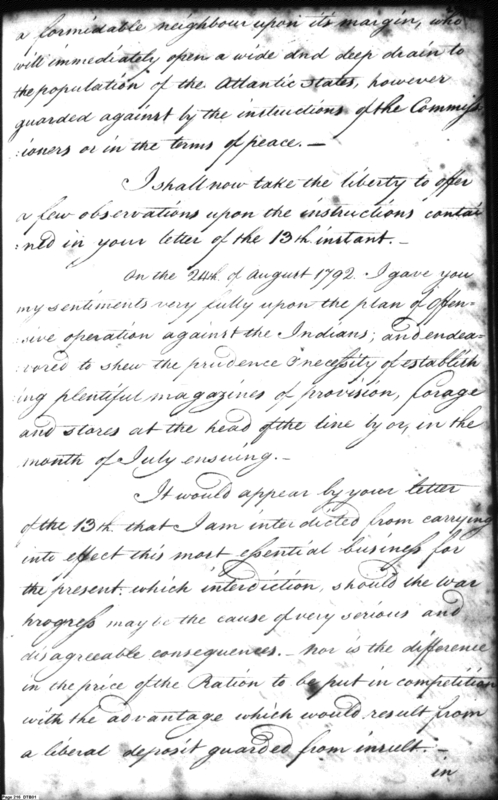 a formidable neighbour upon its margin, who
will immediately open a wide and deep drain to
the population of the Atlantic States, however
guarded against by the instructions of the Commiss
:ioners or in the terms of peace. —
I shall now take the liberty to offer
a few observations upon the instructions contai
:ned in your letter of the 13th instant. —
On the 24th of August 1792. I gave you
my sentiments very fully upon the plan of offen-
sive operation against the Indians; and endea-
vored to shew the prudence & necessity of establish
ing plentiful magazines of provision, forage
and stores at the head of the line by or, in the
month of July ensuing. —
It would appear by your letter
of the 13th that I am interdicted from carrying
into effect this most essential business for
the present. which interdiction, should the war
progress may be the cause of very serious and
disagreeable consequences. — nor is the difference
in the price of the Ration to be put in competition
with the advantage which would result from
a liberal deposit guarded from insult. —
in
Page 216 DTB01